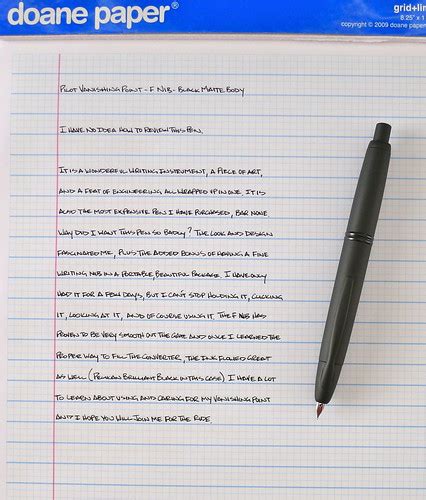 doane paper®
grid+lin
8.25" x 1
copyright © 2009 doane paper
PILOT VANISHING POINT - F NIB - BLACK MATTE BODY
I HAVE NO IDEA HOW TO REVIEW THIS PEN.
IT IS A WONDERFUL WRITING INSTRUMENT, A PIECE OF ART,
AND A FEAT OF ENGINEERING ALL WRAPPED UP IN ONE. IT IS
ALSO THE MOST EXPENSIVE PEN I HAVE PURCHASED, BAR NONE
WHY DID I WANT THIS PEN SO BADLY? THE LOOK AND DESIGN
FASCINATED ME, PLUS THE ADDED BONUS OF HAVING A FINE
WRITING NIB IN A PORTABLE BEAUTIFUL PACKAGE. I HAVE ONLY
HAD IT FOR A FEW DAYS, BUT I CAN'T STOP HOLDING IT, CLICKING
IT, LOOKING AT IT, AND OF COURSE USING IT. THE F NIB HAS
PROVEN TO BE VERY SMOOTH OUT THE GATE AND ONCE I LEARNED THE
PROPER WAY TO FILL THE CONVERTER, THE INK FLOWED GREAT
AS WELL (PELIKAN BRILLIANT BLACK IN THIS CASE) I HAVE A LOT
TO LEARN ABOUT USING AND CARING FOR MY VANISHING POINT
AND I HOPE YOU WILL JOIN ME FOR THE RIDE.